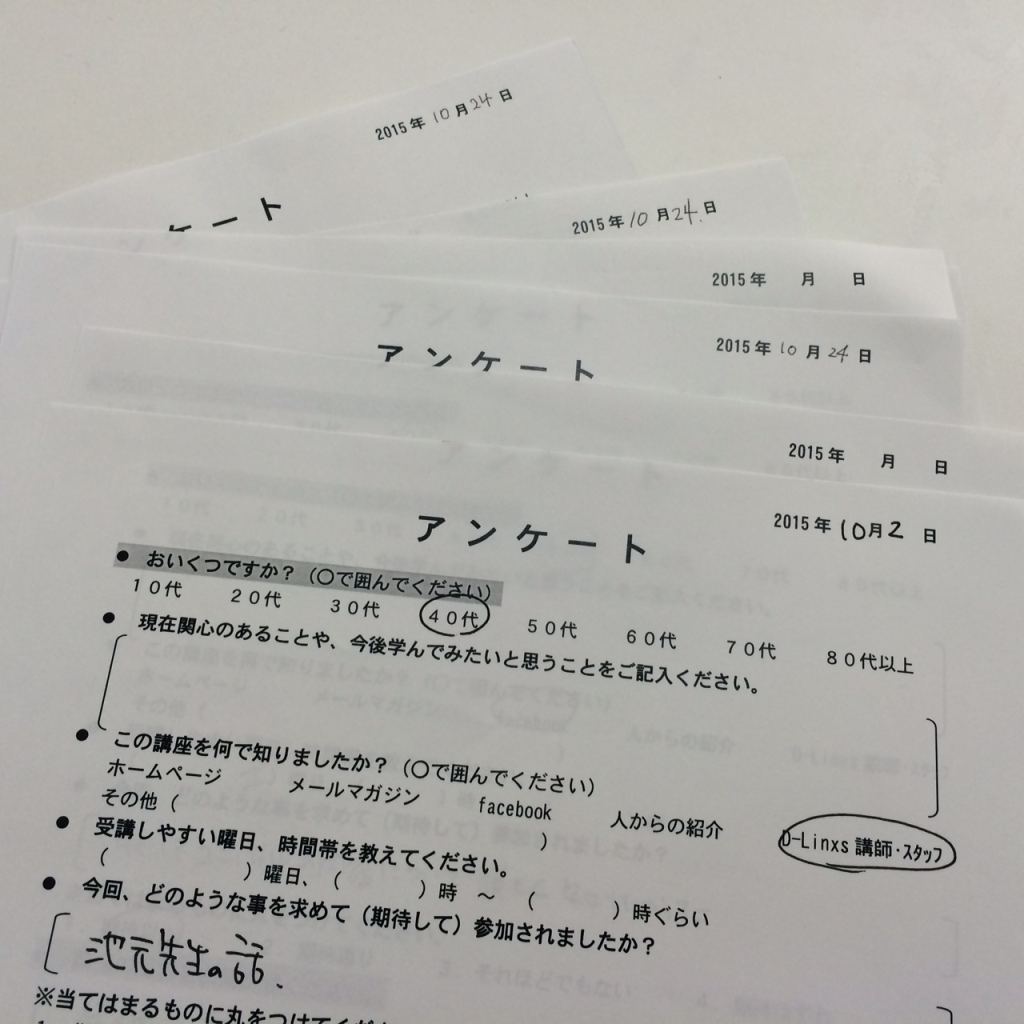 2015年10月24日
ケート
2015年10月24.日
2015年　月　日
2015年10月24日
アンケート
2015年　月　日
2015年10月2日
アンケート
● おいくつですか？（○で囲んでください）
10代　20代　30代　40代　50代　60代　70代　80代以上
● 現在関心のあることや、今後学んでみたいと思うことをご記入ください。
● この講座を何で知りましたか？（○で囲んでください）
ホームページ　メールマガジン　facebook　人からの紹介　D-Linxs 講師・スタッフ
その他（　　）
● 受講しやすい曜日、時間帯を教えてください。
（　　）曜日、（　　）時 ～ （　　）時ぐらい
● 今回、どのような事を求めて（期待して）参加されましたか？
池元先生の話、
※当てはまるものに丸をつけてくだ